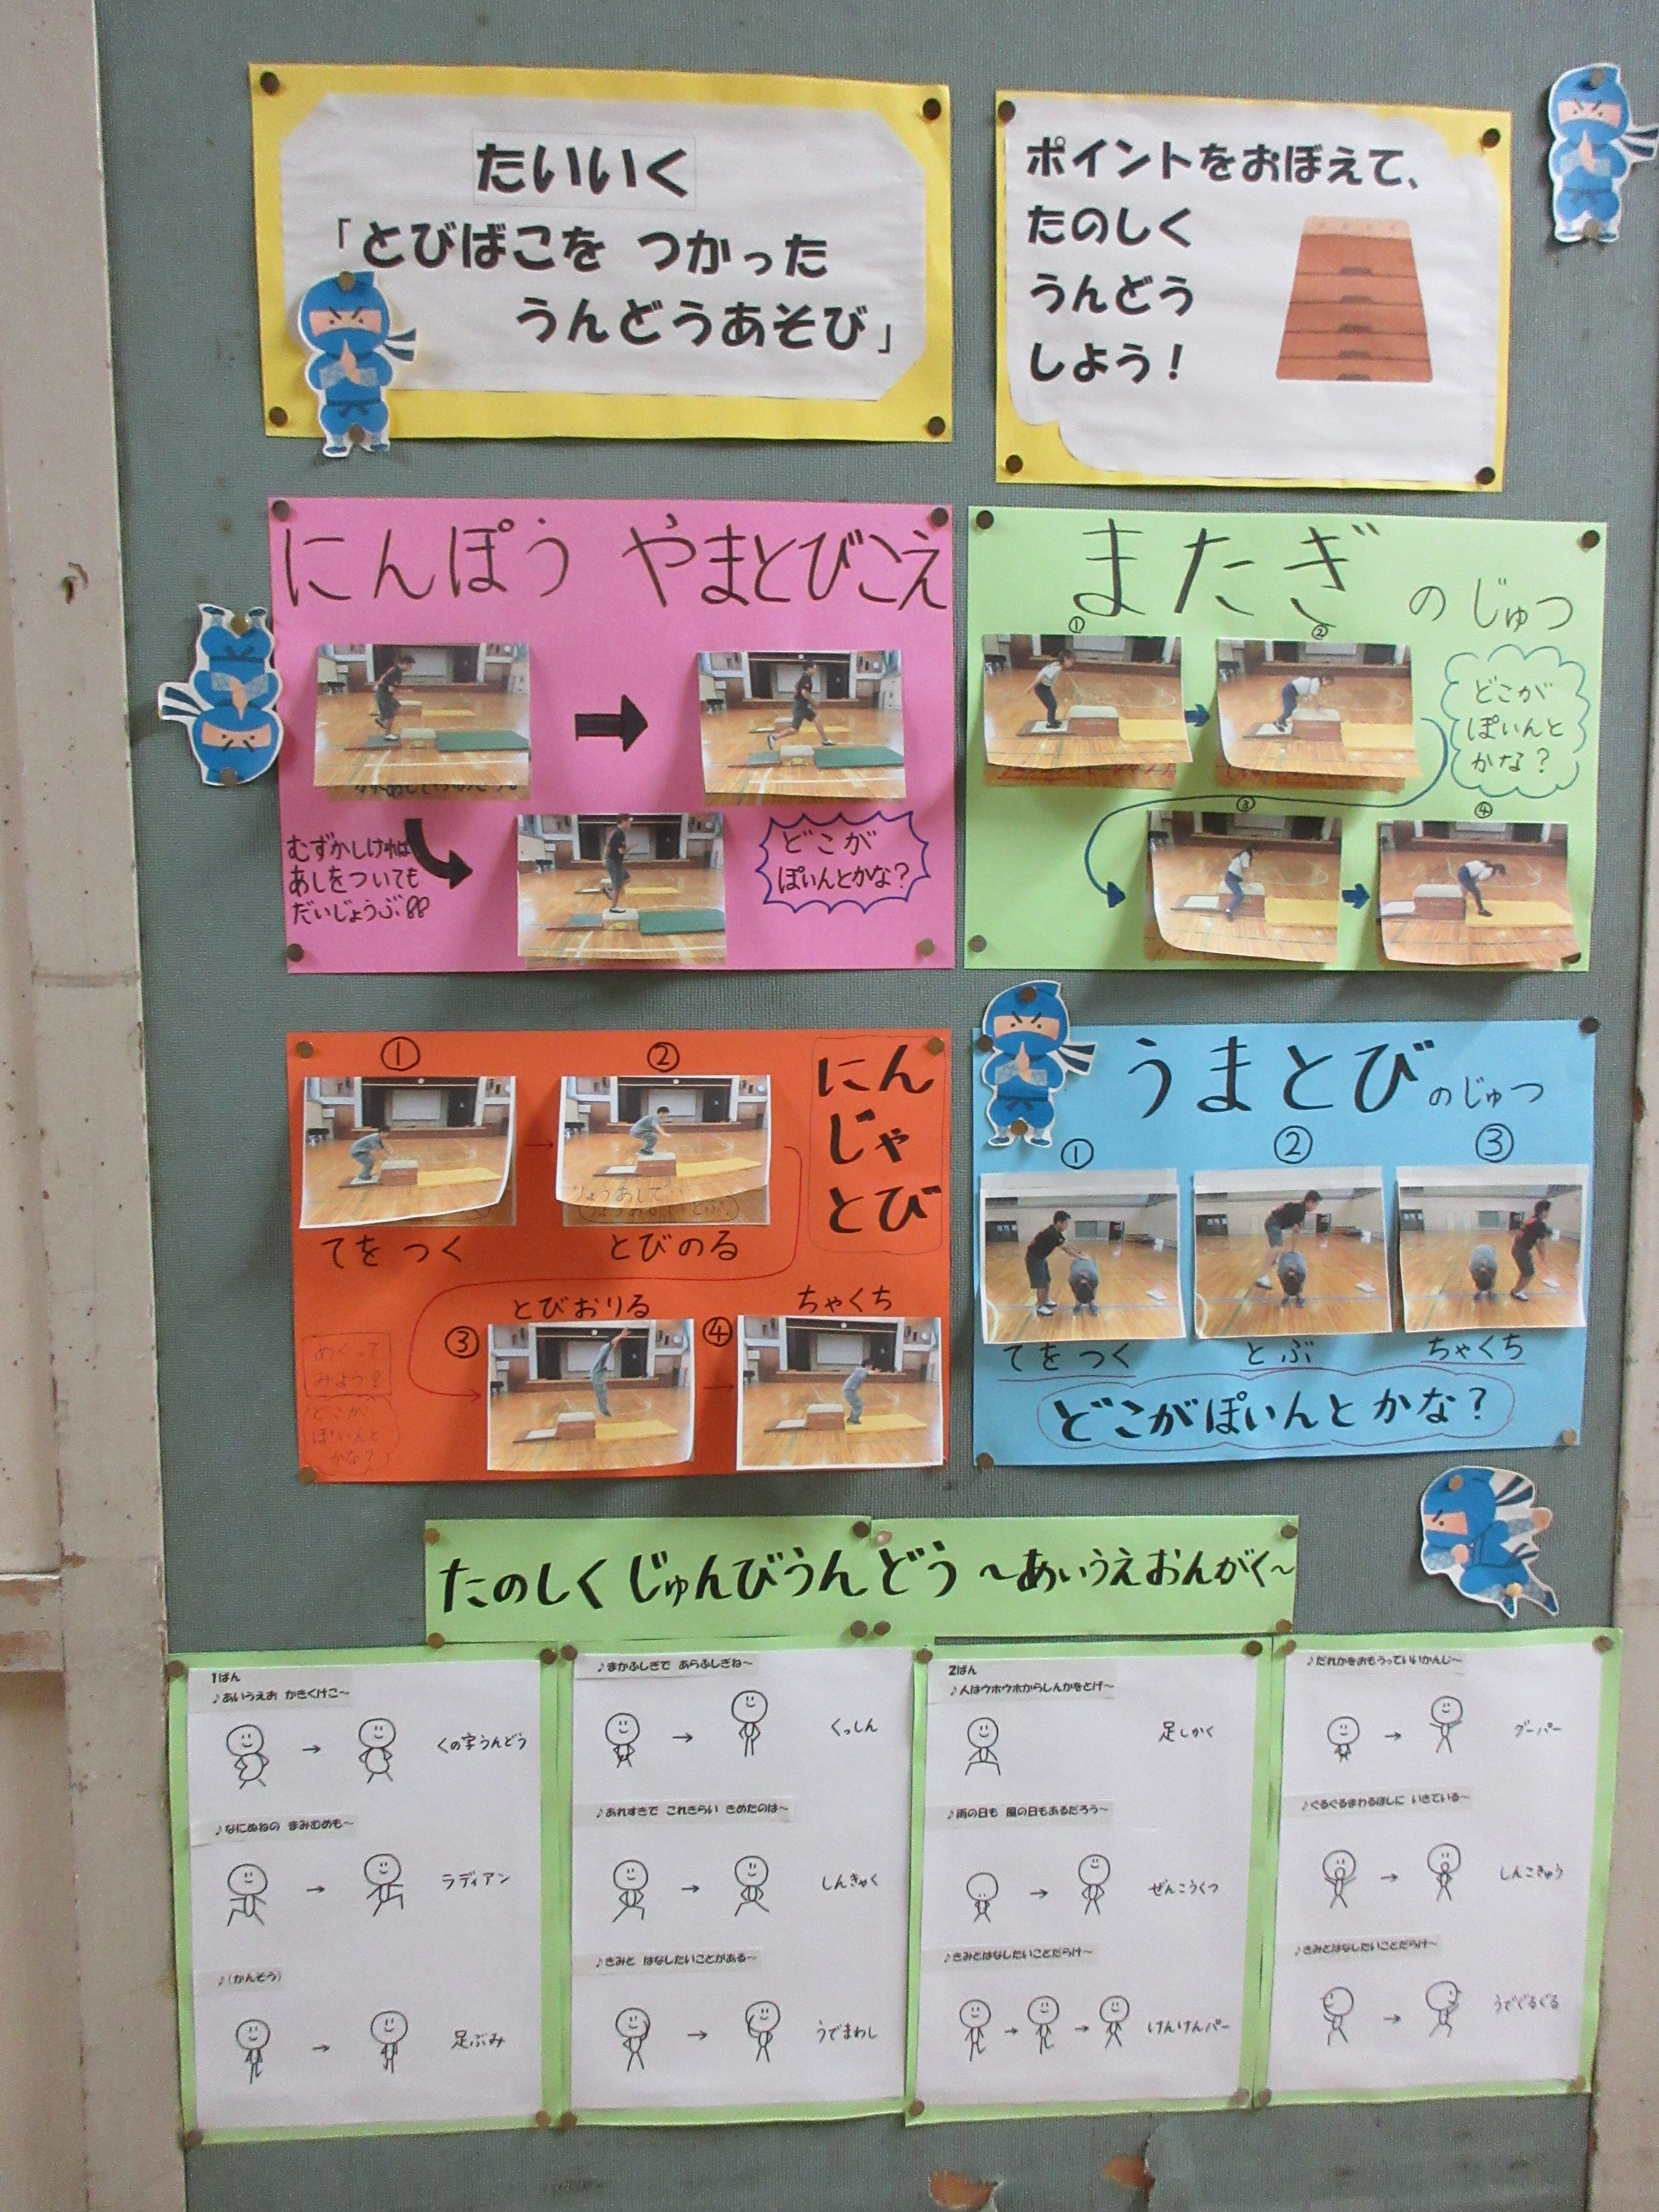 たいいく
「とびばこを つかった
うんどうあそび」
ポイントをおぼえて、
たのしく
うんどう
しよう！
にんぽう やまとびこえ
むずかしければ
あしをついても
だいじょうぶ!!
どこが
ぽいんとかな？
またぎのじゅつ
①
②
どこが
ぽいんと
かな？
③
④
にん
じゃ
とび
①
②
りょうあしで
てをつく
とびのる
とびおりる
ちゃくち
③
④
めくって
みよう！
どこが
ぽいんと
かな？
うまとびのじゅつ
①
②
③
てをつく
とぶ
ちゃくち
どこがぽいんとかな？
たのしくじゅんびうんどう ～あいうえおんがく～
1ばん
♪あいうえお かきくけこ～
くの字うんどう
♪なにぬねの まみむめも～
ラディアン
♪(かんそう)
足ぶみ
♪まかふしぎで あらふしぎね～
くっしん
♪あれすきで これきらい きめたのは～
しんきゃく
♪きみと はなしたいことがある～
うでまわし
2ばん
♪人はウホウホからしんかをとげ～
足しかく
♪雨の日も 風の日もあるだろう～
ぜんこうくつ
♪きみとはなしたいことだらけ～
けんけんパー
♪だれかをおもうっていいかんじ～
グーパー
♪ぐるぐるまわるほしに いきている～
しんこきゅう
♪きみとはなしたいことだらけ～
うでぐるぐる